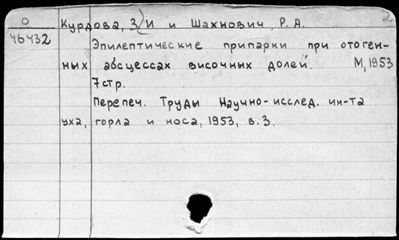 О Курдова, З/И и Шахнович, Р. А.
46432
Эпилептические припарки при отоген-
ных абсцессах височных долей. М, 1953
7стр.
Перепеч. Труды Научно-исслед. ин-та
уха, горла и носа, 1953, в. 3.